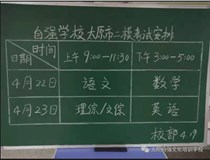 自强学校太原市二模考试安排
时间
日期
上午9:00-11:30 下午3:00-5:00
4月22日 语文 数学
4月23日 理综/文综 英语
校部4.9